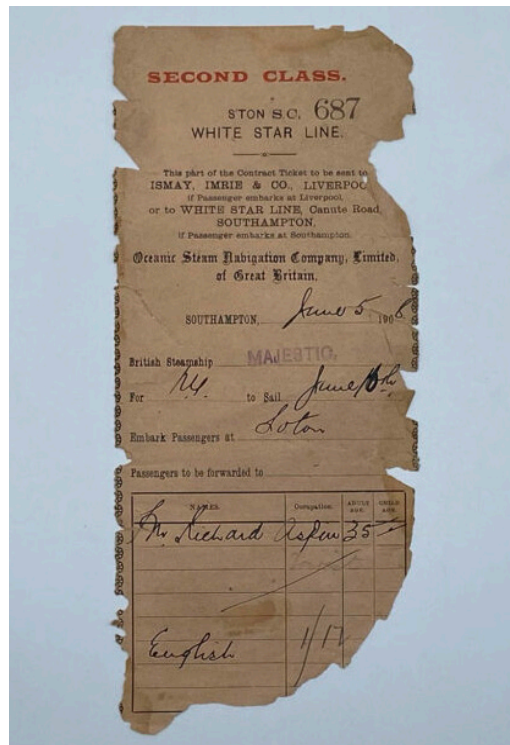 SECOND CLASS.
STON S.C. 687
WHITE STAR LINE.
This part of the Contract Ticket to be sent to
ISMAY, IMRIE & CO., LIVERPOO
if Passenger embarks at Liverpool,
or to WHITE STAR LINE, Canute Road,
SOUTHAMPTON,
if Passenger embarks at Southampton.
Oceanic Steam Navigation Company, Limited,
of Great Britain.
SOUTHAMPTON, June 5 1908
British Steamship MAJESTIC,
For N.Y. to Sail June
Embark Passengers at Soton
Passengers to be forwarded to
NAMES. Occupation. ADULT AGE. CHILD AGE.
Mr. Richard Aspin 35
English 1/17